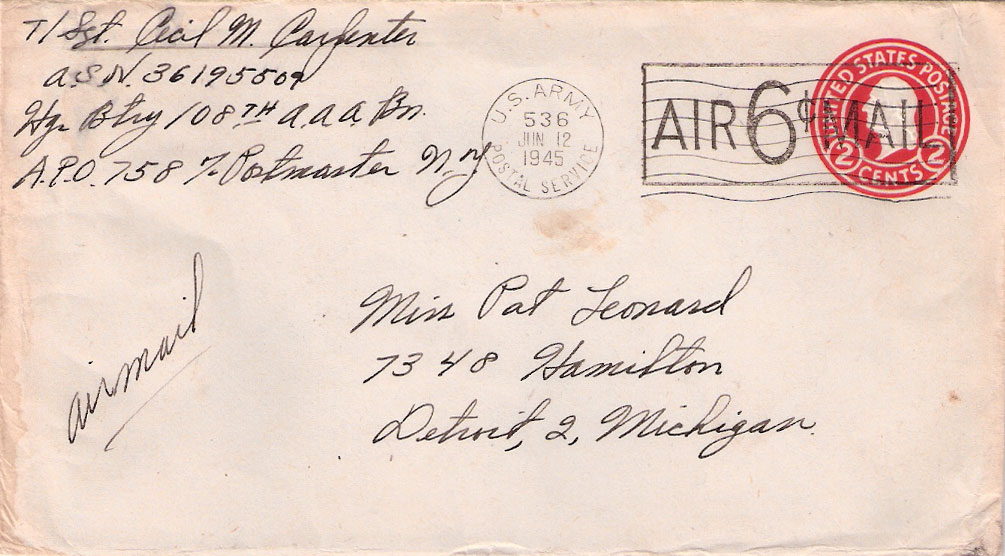 T/Sgt. Cecil M. Carpenter
A.S.N. 36195509
Hq. Btry 108TH A.A.A. Bn.
A.P.O. 758 % Postmaster N.Y.
U.S. ARMY
536
JUN 12
1945
POSTAL SERVICE
AIR 6¢ MAIL
UNITED STATES POSTAGE
2 CENTS 2
airmail
Miss Pat Leonard
7348 Hamilton
Detroit, 2, Michigan.